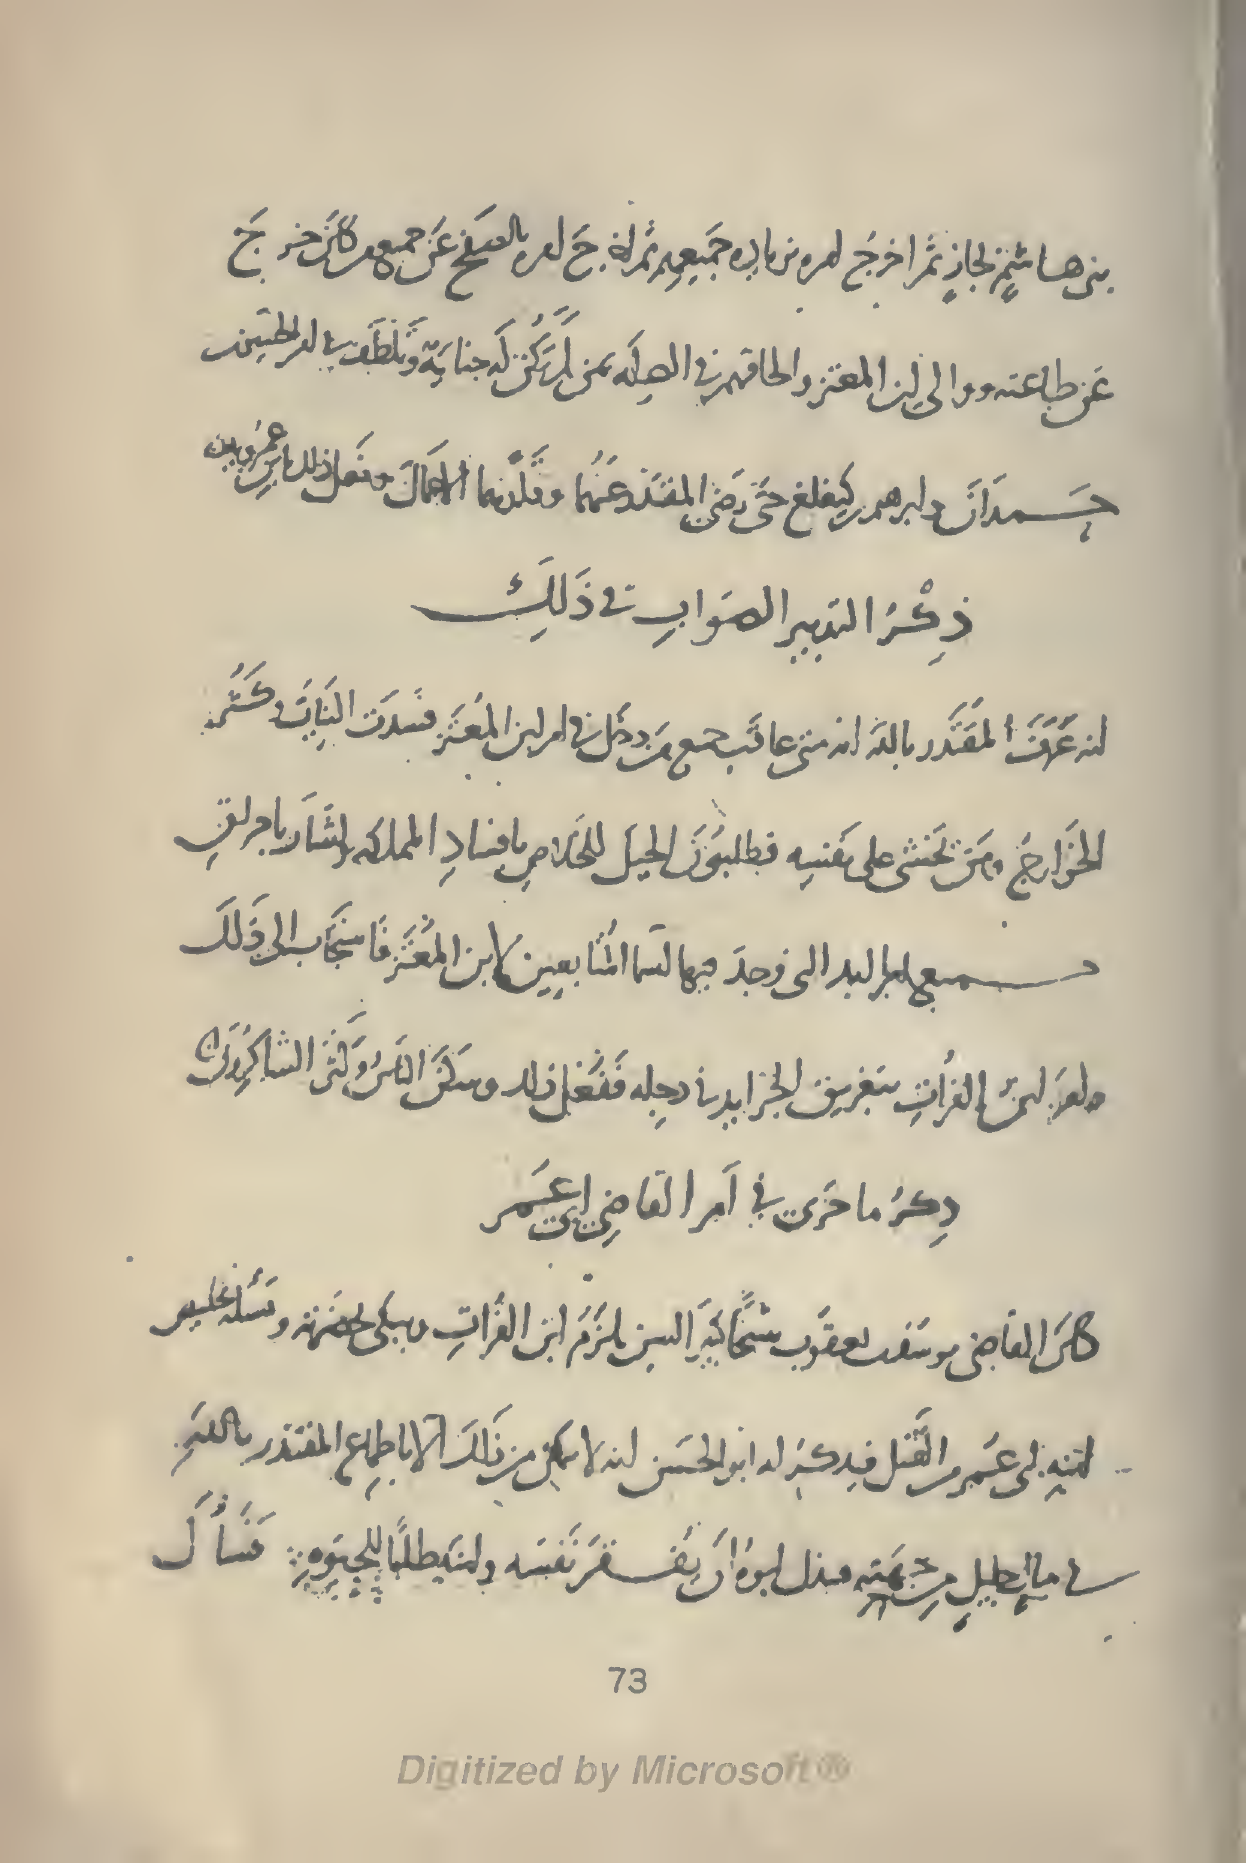 بنى هاشم لجاز ثم اخرج امره بزيادة جميعهم ثم له خرج امره بالصفح عن جميع من كان خرج
عن طاعته ووالى ابن المعتز والحاقهم فى الصله بمن لم تكن له جناية وتلطف فى امر الحسين بن
حمدان وابرهيم بن كيغلغ حتى رضى المقتدر عنهما وقلدهما الاعمال وفعل ذلك بابن عمرويه
ذكر التدبير الصواب فى ذلك
انه عرف المقتدر بالله انه متى عاقب جميع من دخل فى امر ابن المعتز فسدت النيات وكثر
الخوارج ومن يخشى على نفسه فيطلبون الحيل للخلاص بافساد المملكه واشار باحراق
جميع الجرايد التى وجد فيها اسما المتابعين لابن المعتز فاستجاب الى ذلك
وامر ابن الفرات بتغريق الجرايد فى دجله ففعل ذلك وسكن الناس وكثر الشاكرون
ذكر ما جرى فى امر القاضى ابى عمر
كان القاضى يوسف بن يعقوب شيخا كبير السن يلزم ابن الفرات ويبكى بحضرته ويسله تخليص
ابنه ابى عمر من القتل فيذكر له ابو الحسن انه لا يمكن من ذلك الا باطماع المقتدر بالله
فى مال جليل من جهته فبذل ابوه ان يفقر نفسه وابنه طلبا للحيوه فسأل
73
Digitized by Microsoft®